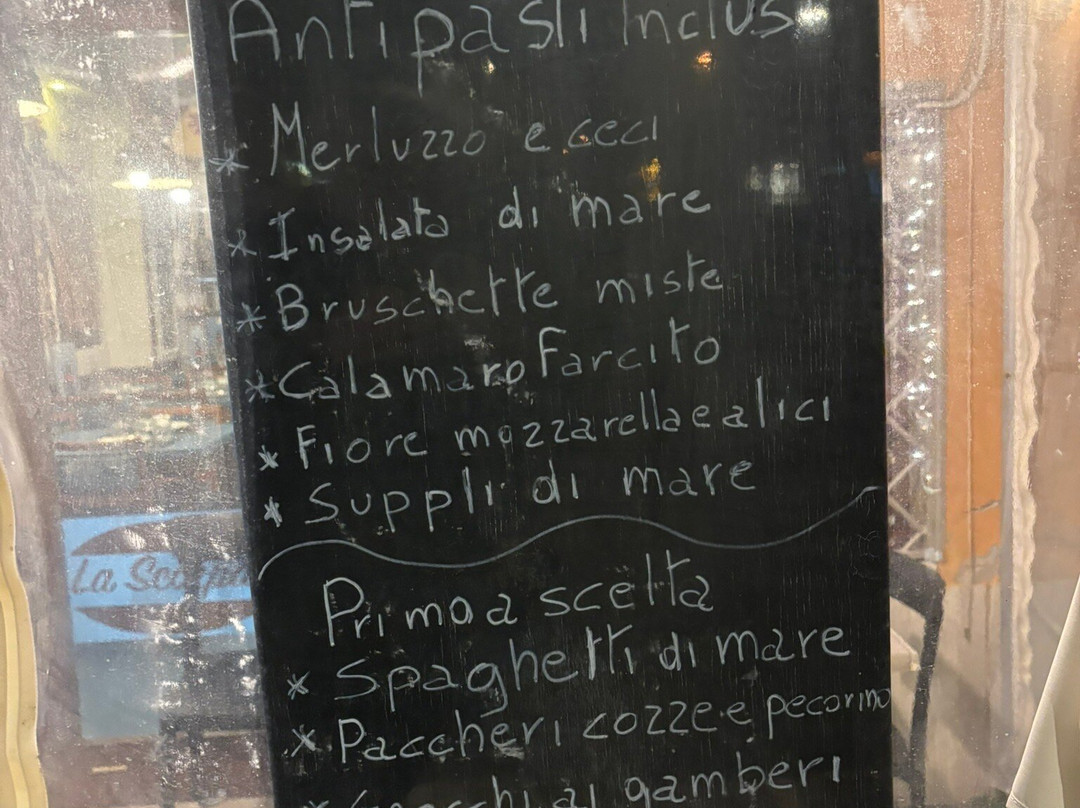 Antipasti inclusi
* Merluzzo e ceci
* Insalata di mare
* Bruschette miste
* Calamaro farcito
* Fiore mozzarella e alici
* Supplì di mare
Primo a scelta
* Spaghetti di mare
* Paccheri cozze e pecorino
* Gnocchi ai gamberi
La